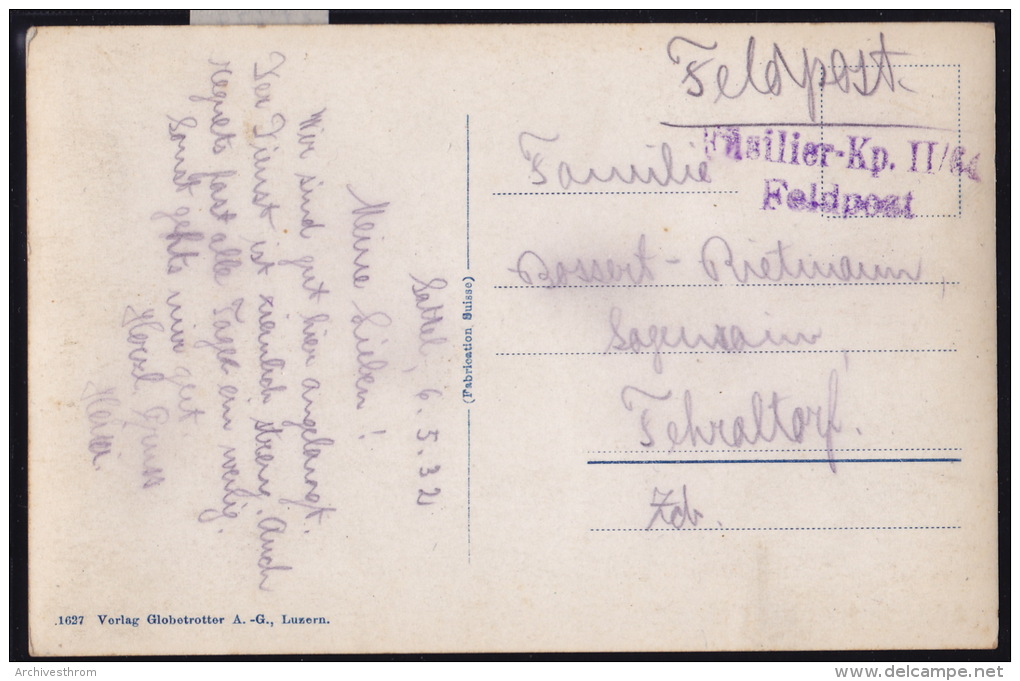 Sattel, 6. 5. 32
Meine Lieben!
Wir sind gut hier angelangt.
Der Dienst ist ziemlich streng. Auch
regnets fast alle Tage ein wenig.
Sonst gehts mir gut.
Herzl. Gruss
Feldpost.
Füsilier-Kp. II/64
Feldpost
Familie
Bossert-Rietmann,
Fehraltorf.
Zch.
(Fabrication Suisse)
.1627 Verlag Globetrotter A. -G., Luzern.
Archivesthrom
www.delcampe.net